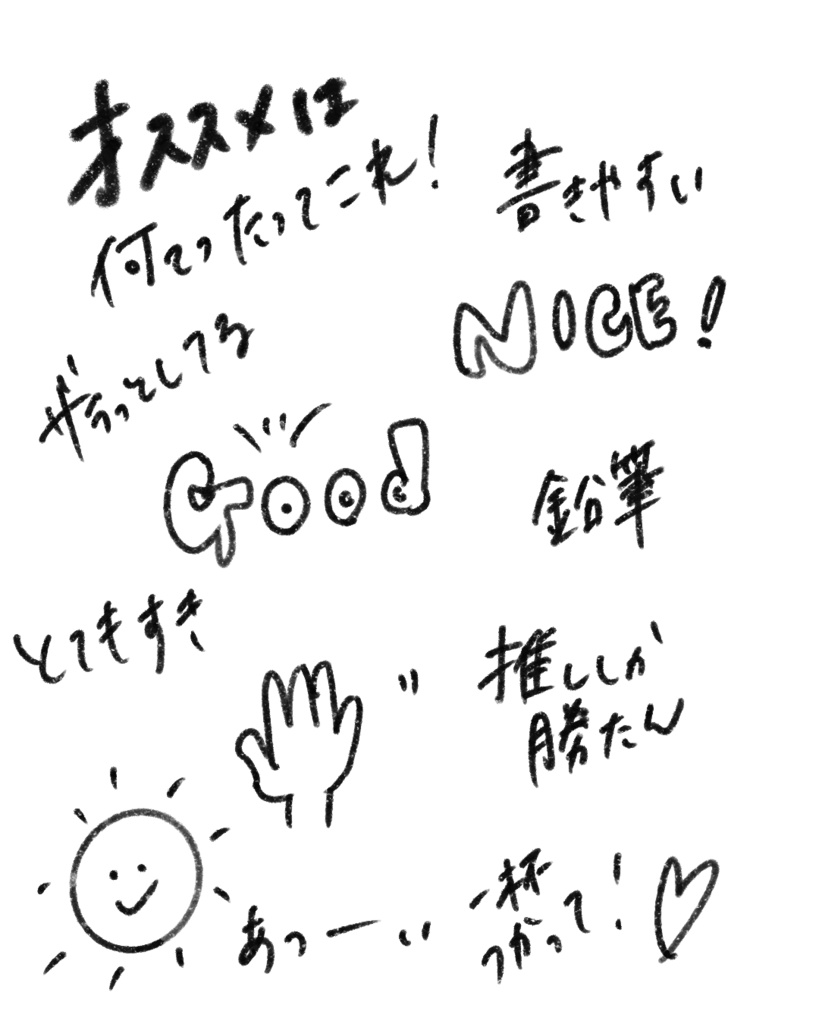 オススメは
何てったってこれ!
書きやすい
NICE!
ザラっとしてる
Good
鉛筆
とてもすき
推ししか
勝たん
あっーい
一杯
つかって!